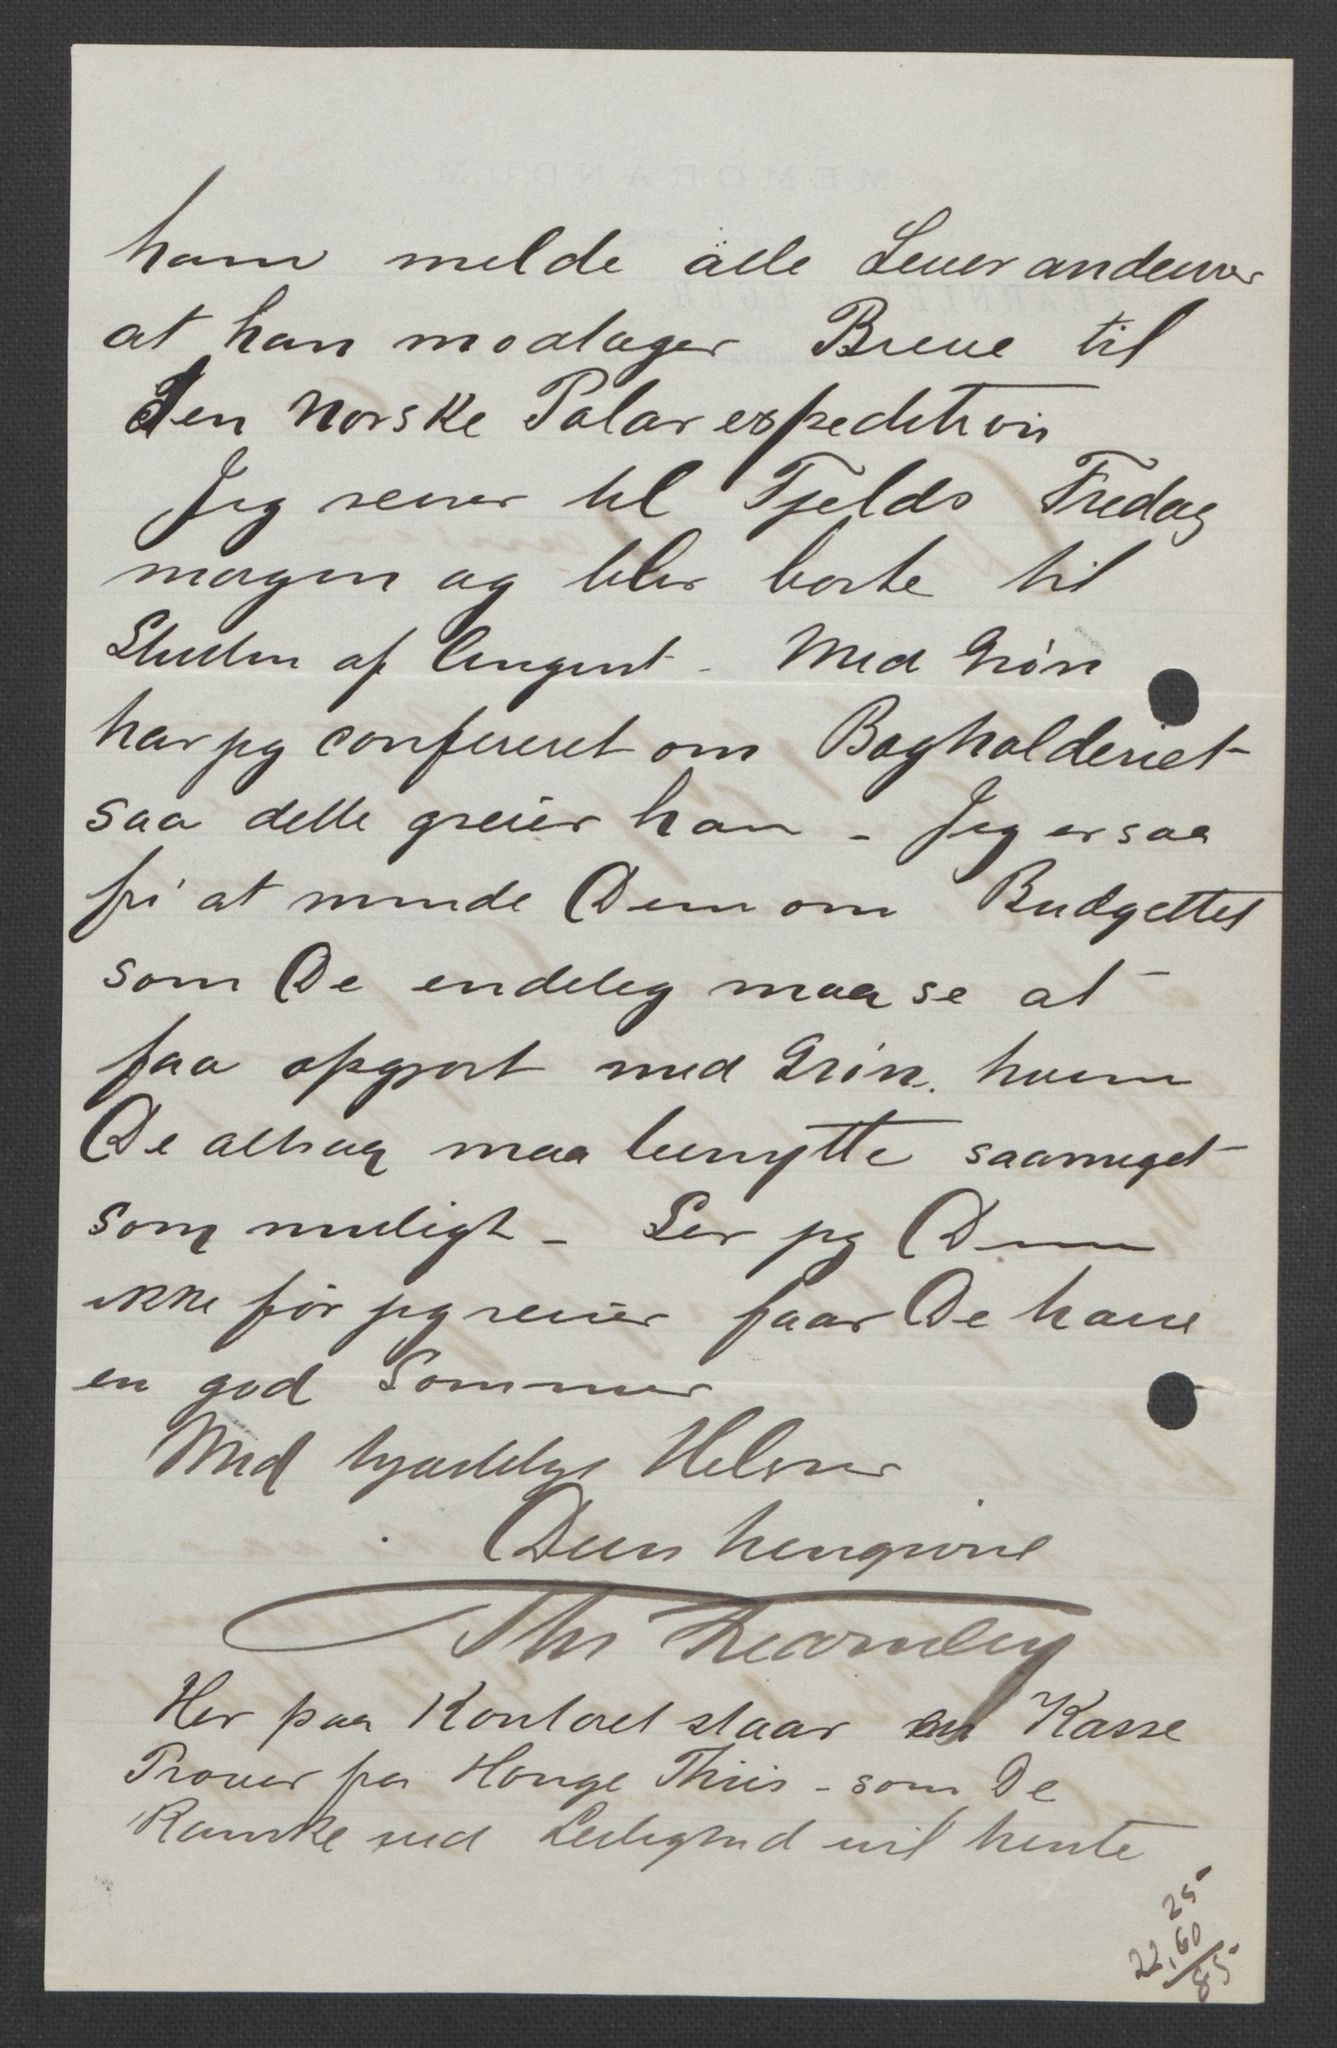 ham melde alle Leverandeurer
at han modtager Breve til
Den Norske Polarexpedition
Jeg reiser til Fjelds Fredag
morgen og blir borte til
Slutten af August - Med Grøn
har jeg confereret om Bogholderiet
saa dette greier han - Jeg er saa
fri at minde Dem om Budgettet
som De endelig maa se at
faa opgjort med Grøn. hvem
De altsaa maa benytte saameget
som muligt - Ser jeg Dem
ikke før jeg reiser faar De have
en god Sommer
Med hjertelige Hilsner
Deres hengivne
Ths Fearnley
Her paa Kontoret staar en Kasse
Prøver fra Honge Thiis - som De
Kanske ved Leilighed vil hente
25
22,60
85